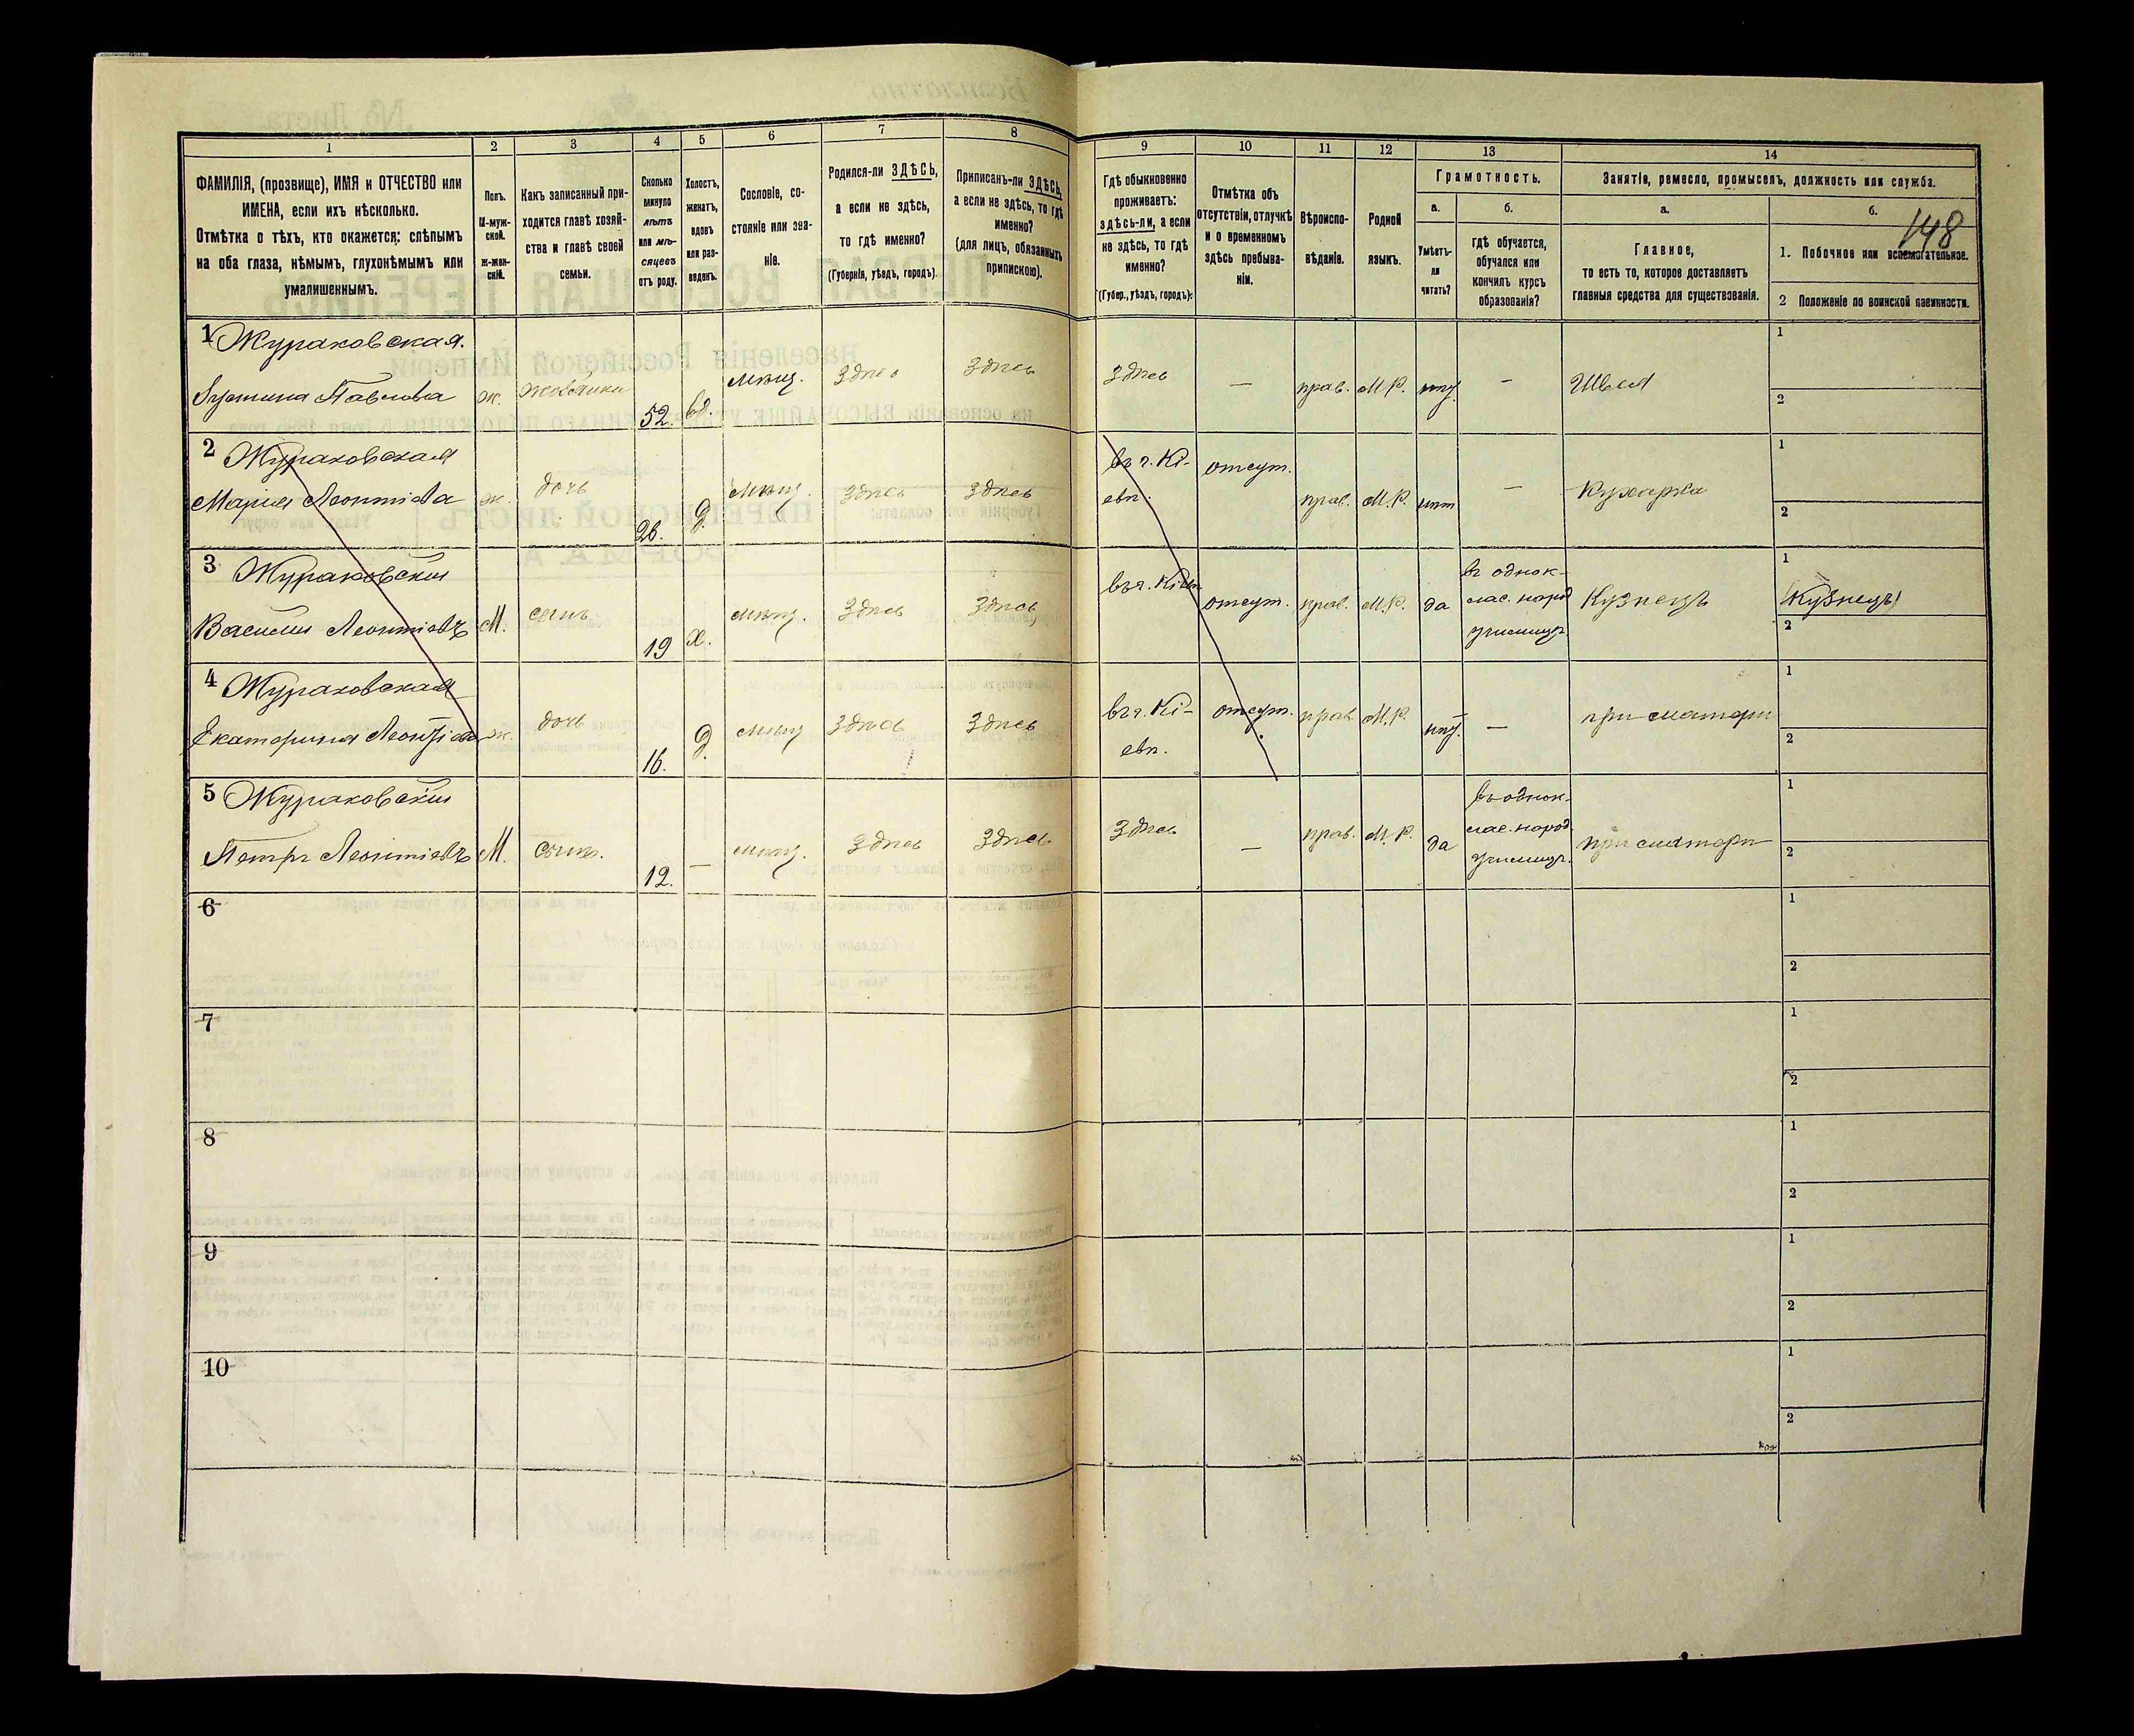 148
1 2 3 4 5 6 7 8 9 10 11 12 13 14
ФАМИЛІЯ, (прозвище), ИМЯ и ОТЧЕСТВО или
ИМЕНА, если ихъ нѣсколько.
Отмѣтка о тѣхъ, кто окажется: слѣпымъ
на оба глаза, нѣмымъ, глухонѣмымъ или
умалишеннымъ.
Полъ.
М-муж-
ской.
ж-жен-
скій.
Какъ записанный при-
ходится главѣ хозяй-
ства и главѣ своей
семьи.
Сколько
минуло
лѣтъ
или мѣ-
сяцевъ
отъ роду.
Холостъ,
женатъ,
вдовъ
или раз-
веденъ.
Сословіе, со-
стояніе или зва-
ніе.
Родился-ли ЗДѢСЬ,
а если не здѣсь,
то гдѣ именно?
(Губернія, уѣздъ, городъ).
Приписанъ-ли ЗДѢСЬ,
а если не здѣсь, то гдѣ
именно?
(для лицъ, обязанныхъ
припискою).
Гдѣ обыкновенно
проживаетъ:
здѣсь-ли, а если
не здѣсь, то гдѣ
именно?
(Губер., уѣздъ, городъ):
Отмѣтка объ
отсутствіи, отлучкѣ
и о временномъ
здѣсь пребыва-
ніи.
Вѣроиспо-
вѣданіе.
Родной
языкъ.
Грамотность.
а.
Умѣетъ-
ли
читать?
б.
гдѣ обучается,
обучался или
кончилъ курсъ
образованія?
Занятіе, ремесло, промыселъ, должность или служба.
а.
Главное,
то есть то, которое доставляетъ
главныя средства для существованія.
б.
1. Побочное или вспомогательное.
2 Положеніе по воинской повинности.
1 Жураковская.
Павлова ж. 52. вд. мѣщ. здѣсь здѣсь здѣсь — прав. М.Р. нѣт. — Швея
1
2
2 Жураковская
Марія Леонтіева ж. дочь 26. д. мѣщ. здѣсь здѣсь въ г. Кі-
евѣ. отсут. прав. М.Р. нѣт — Кухарка
1
2
3 Жураковскій
Василій Леонтіевъ М. сынъ 19 х. мѣщ. здѣсь здѣсь въ г. Кіевѣ отсут. прав. М.Р. да въ однок-
лас. народ
училищѣ Кузнецъ
1 (Кузнецъ)
2
4 Жураковская
Екатерина Леонтіева ж. дочь 16. д. мѣщ здѣсь здѣсь въ г. Кі-
евѣ. отсут. прав. М.Р. нѣт. — при матери
1
2
5 Жураковскій
Петръ Леонтіевъ М. сынъ. 12. — мѣщ. здѣсь здѣсь здѣсь — прав. М.Р. да въ однок-
лас. народ.
училищѣ. при матери
1
2
6
1
2
7
1
2
8
1
2
9
1
2
10
1
2